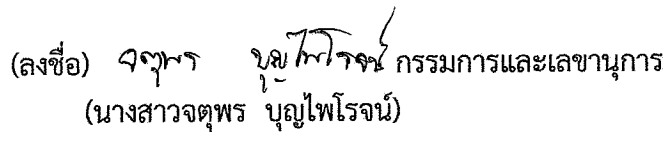 (ลงชื่อ) จตุพร บุญไพโรจน์ กรรมการและเลขานุการ
(นางสาวจตุพร บุญไพโรจน์)